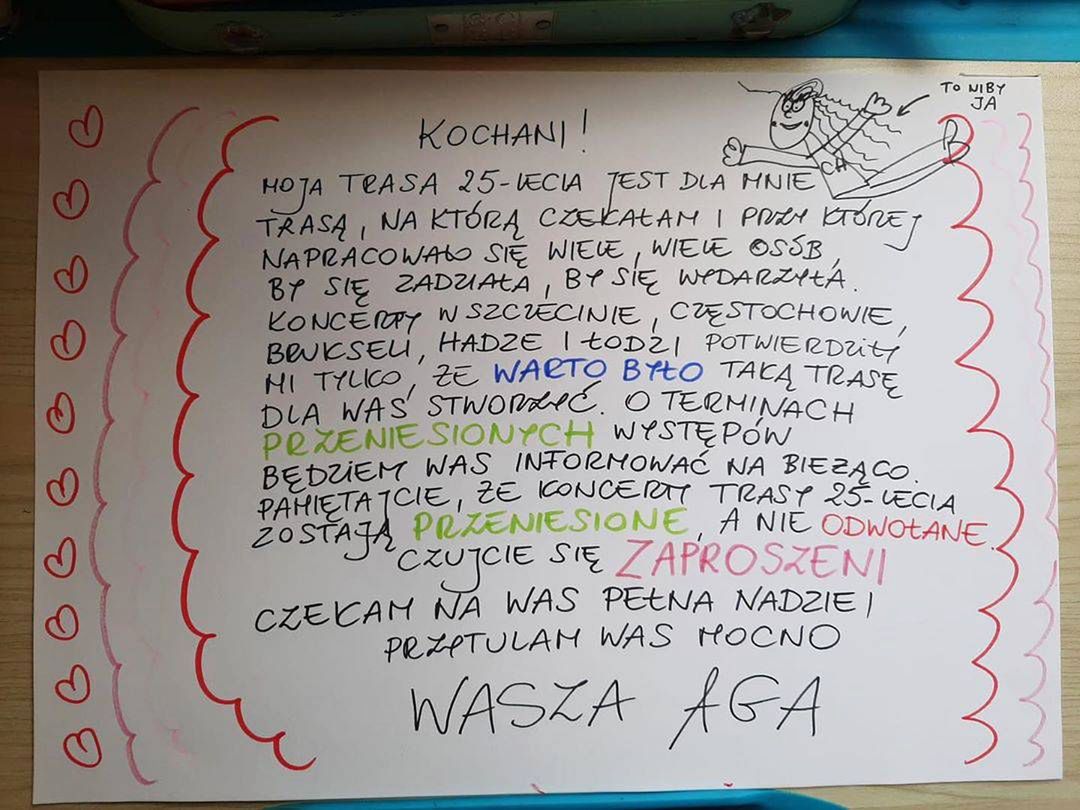 TO NIBY
JA
KOCHANI!
MOJA TRASA 25-LECIA JEST DLA MNIE
TRASĄ, NA KTÓRĄ CZEKAŁAM I PRZY KTÓREJ
NAPRACOWAŁO SIĘ WIELE, WIELE OSÓB,
BY SIĘ ZADZIAŁA, BY SIĘ WYDARZYŁA.
KONCERTY W SZCZECINIE, CZĘSTOCHOWIE,
BRUKSELI, HADZE I ŁODZI POTWIERDZIŁY
MI TYLKO, ŻE WARTO BYŁO TAKĄ TRASĘ
DLA WAS STWORZYĆ. O TERMINACH
PRZENIESIONYCH WYSTĘPÓW
BĘDZIEM WAS INFORMOWAĆ NA BIEŻĄCO.
PAMIĘTAJCIE, ŻE KONCERTY TRASY 25-LECIA
ZOSTAJĄ PRZENIESIONE, A NIE ODWOŁANE.
CZUJCIE SIĘ ZAPROSZENI
CZEKAM NA WAS PEŁNA NADZIEI
PRZYTULAM WAS MOCNO
WASZA AGA